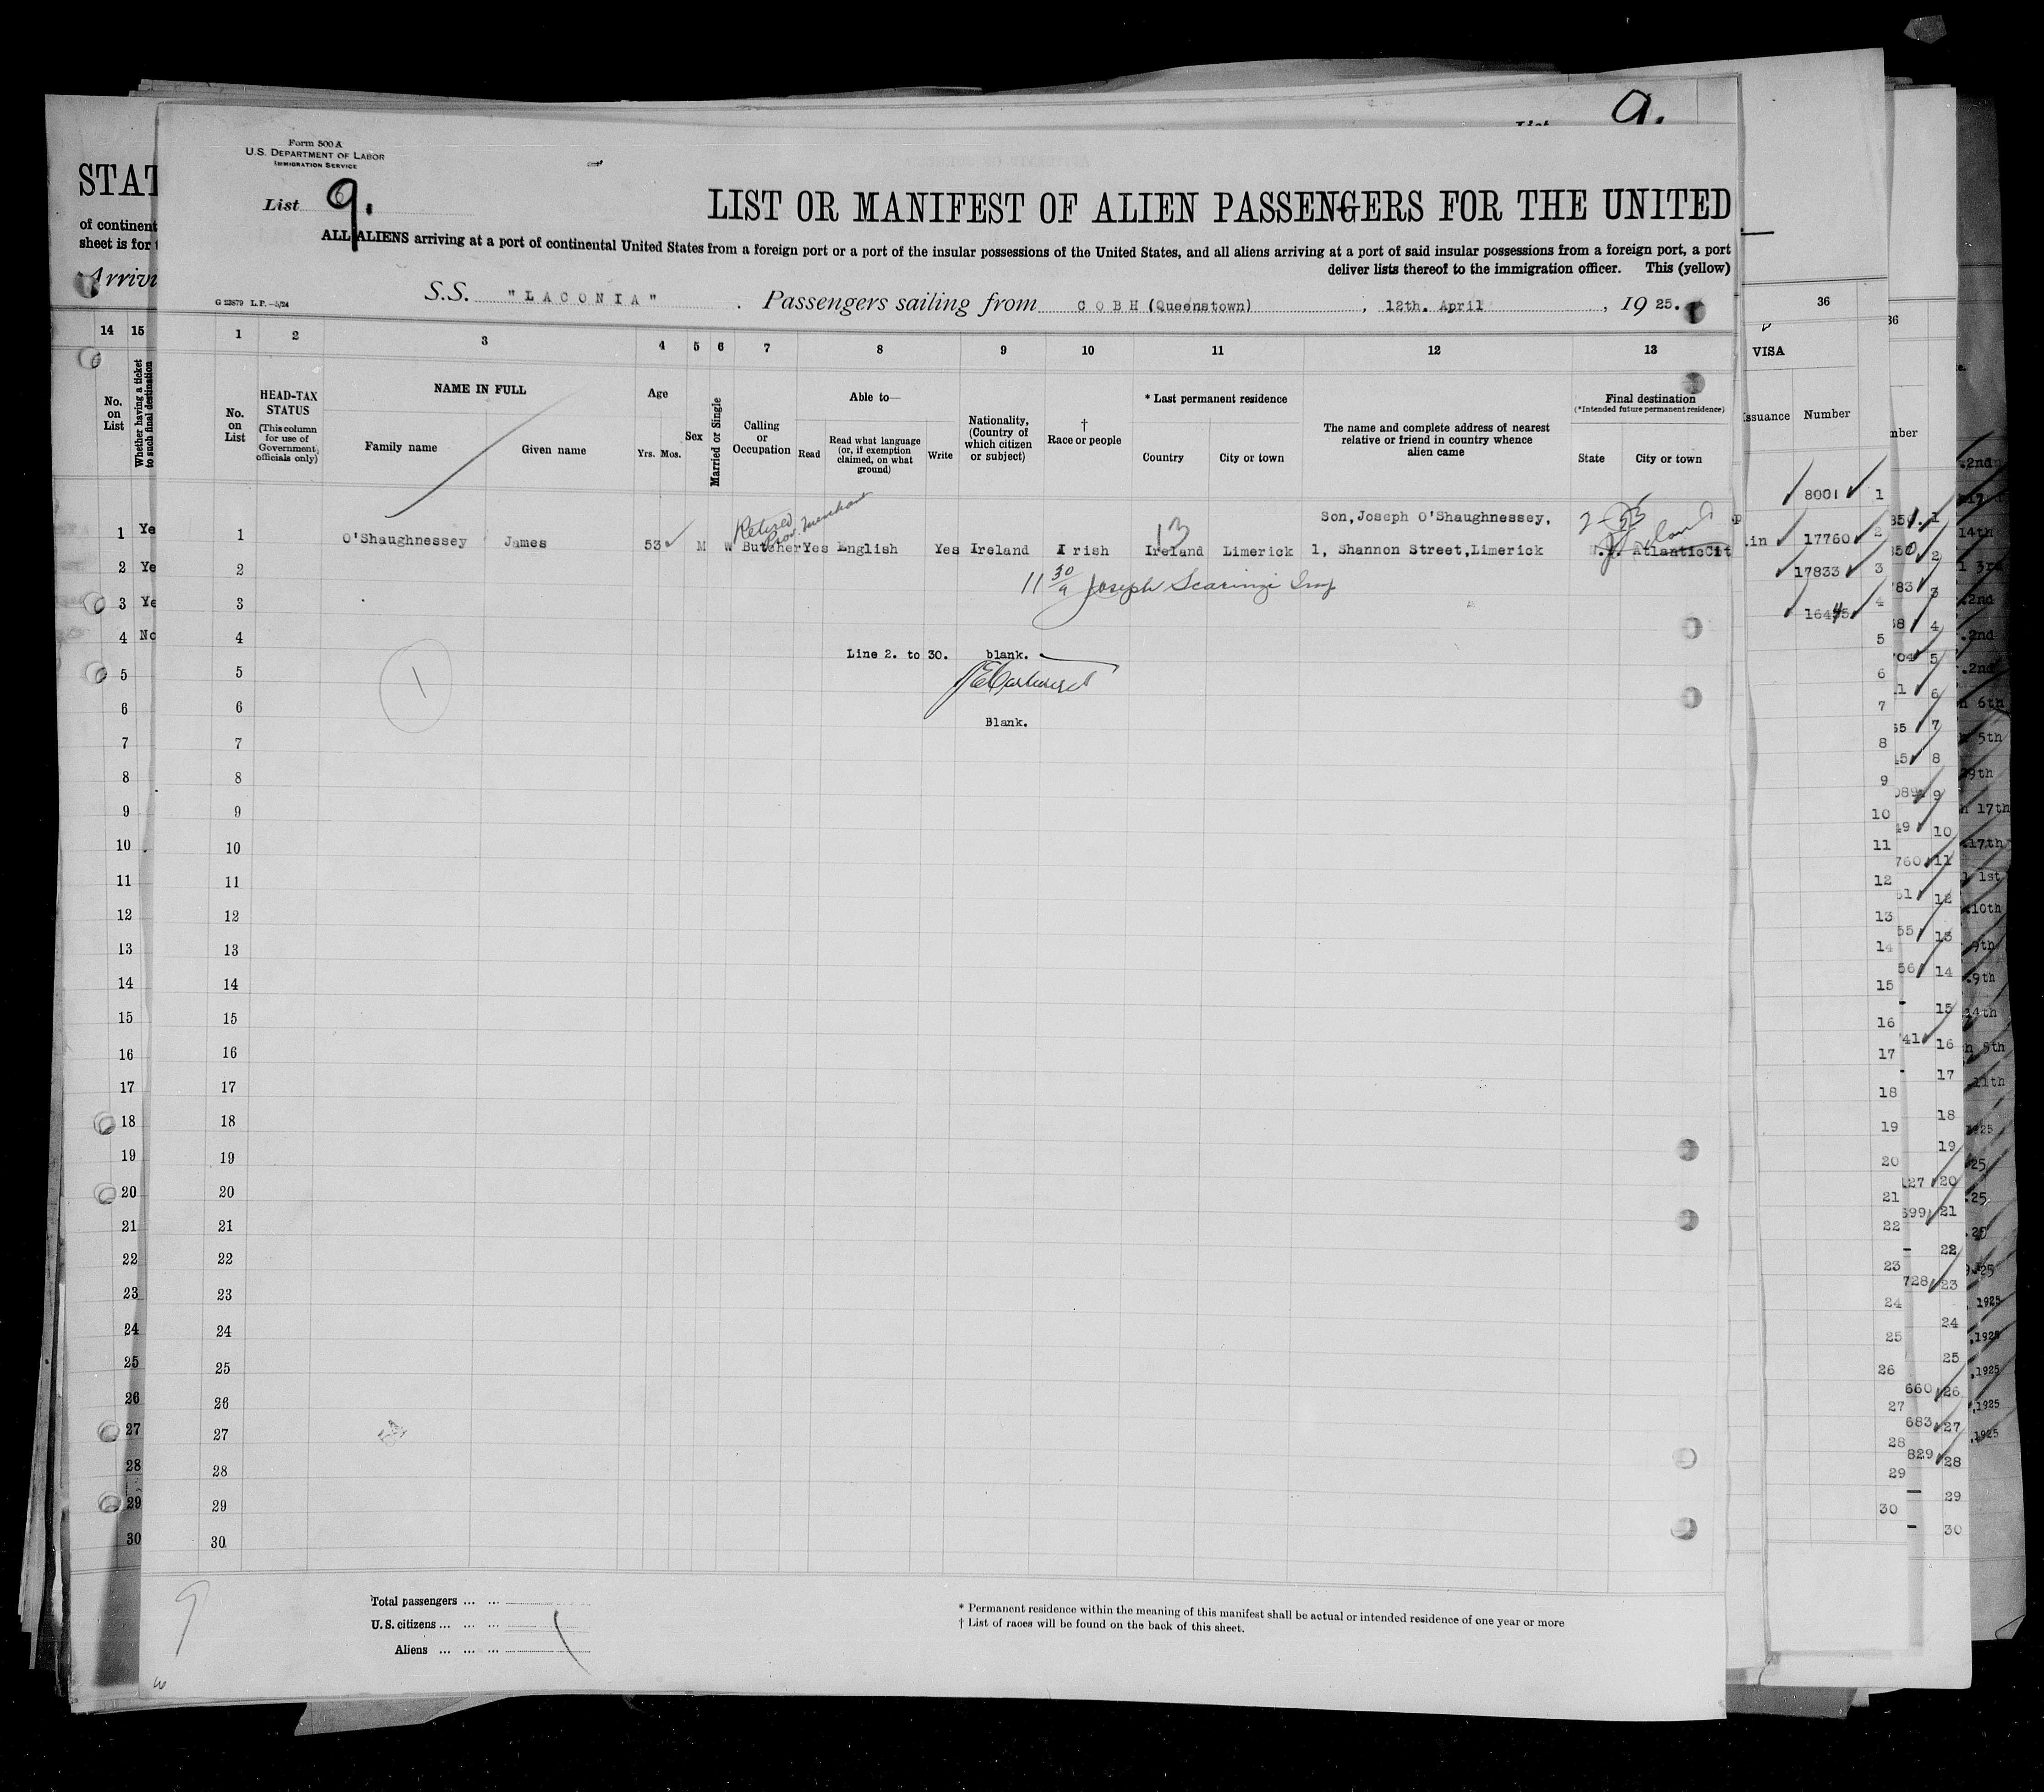 Form 500 A
U.S. DEPARTMENT OF LABOR
IMMIGRATION SERVICE
List 9.
LIST OR MANIFEST OF ALIEN PASSENGERS FOR THE UNITED
ALL ALIENS arriving at a port of continental United States from a foreign port or a port of the insular possessions of the United States, and all aliens arriving at a port of said insular possessions from a foreign port, a port
deliver lists thereof to the immigration officer. This (yellow)
G 23879 L.P.-5/24
S.S. "LACONIA". Passengers sailing from COBH (Queenstown), 12th. April, 1925.
1 2 3 4 5 6 7 8 9 10 11 12 13
No. on List
HEAD-TAX STATUS (This column for use of Government officials only)
NAME IN FULL
Family name
Given name
Age
Yrs. Mos.
Sex
Married or Single
Calling or Occupation
Able to—
Read
Read what language (or, if exemption claimed, on what ground)
Write
Nationality, (Country of which citizen or subject)
† Race or people
* Last permanent residence
Country
City or town
The name and complete address of nearest relative or friend in country whence alien came
Final destination
(*Intended future permanent residence)
State
City or town
Retired
13
Son, Joseph O'Shaughnessey,
1 O'Shaughnessey James 53 M W Butcher Yes English Yes Ireland Irish Ireland Limerick 1, Shannon Street, Limerick AtlanticCit
2
11 30/a Joseph Scaringi Insp
3
4
Line 2. to 30. blank.
5
1
6
Blank.
7
8
9
10
11
12
13
14
15
16
17
18
19
20
21
22
23
24
25
26
27
28
29
30
Total passengers ... ...
U.S. citizens ... ... ...
Aliens ... ... ...
* Permanent residence within the meaning of this manifest shall be actual or intended residence of one year or more
† List of races will be found on the back of this sheet.
9
STAT
of continent
sheet is for
Arrivi
14 15
No. on List
Whether having a ticket to such final destination
1 Ye
2 Ye
3 Ye
4 No
5
6
7
8
9
10
11
12
13
14
15
16
17
18
19
20
21
22
23
24
25
26
27
28
29
30
36
VISA
Issuance
Number
8001 1
17760 2
17833 3
4
5
6
7
8
9
10
11
12
13
14
15
16
17
18
19
20
21
22
23
24
25
26
27
28
29
30